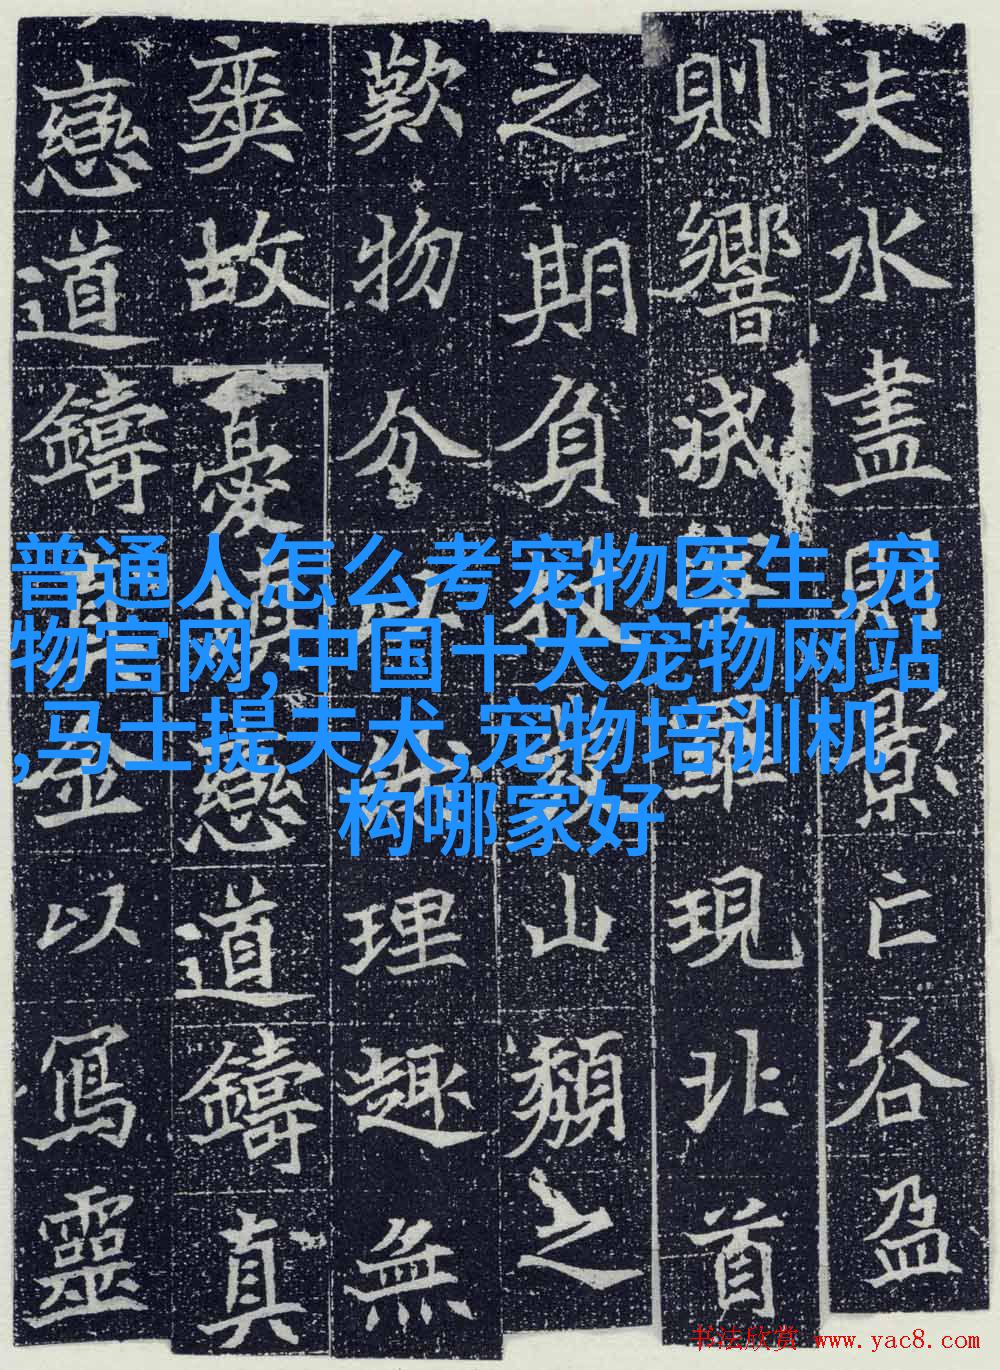 夫水盡則影亡谷盈
則響滅現北首
之期負山頹之
歎物分理趣無
奕故憂戀道鑄真
戀道鑄金以寫靈
普通人怎么考宠物医生,宠
物官网,中国十大宠物网站
,马士提夫犬,宠物培训机
构哪家好
书法欣赏 www.yac8.com